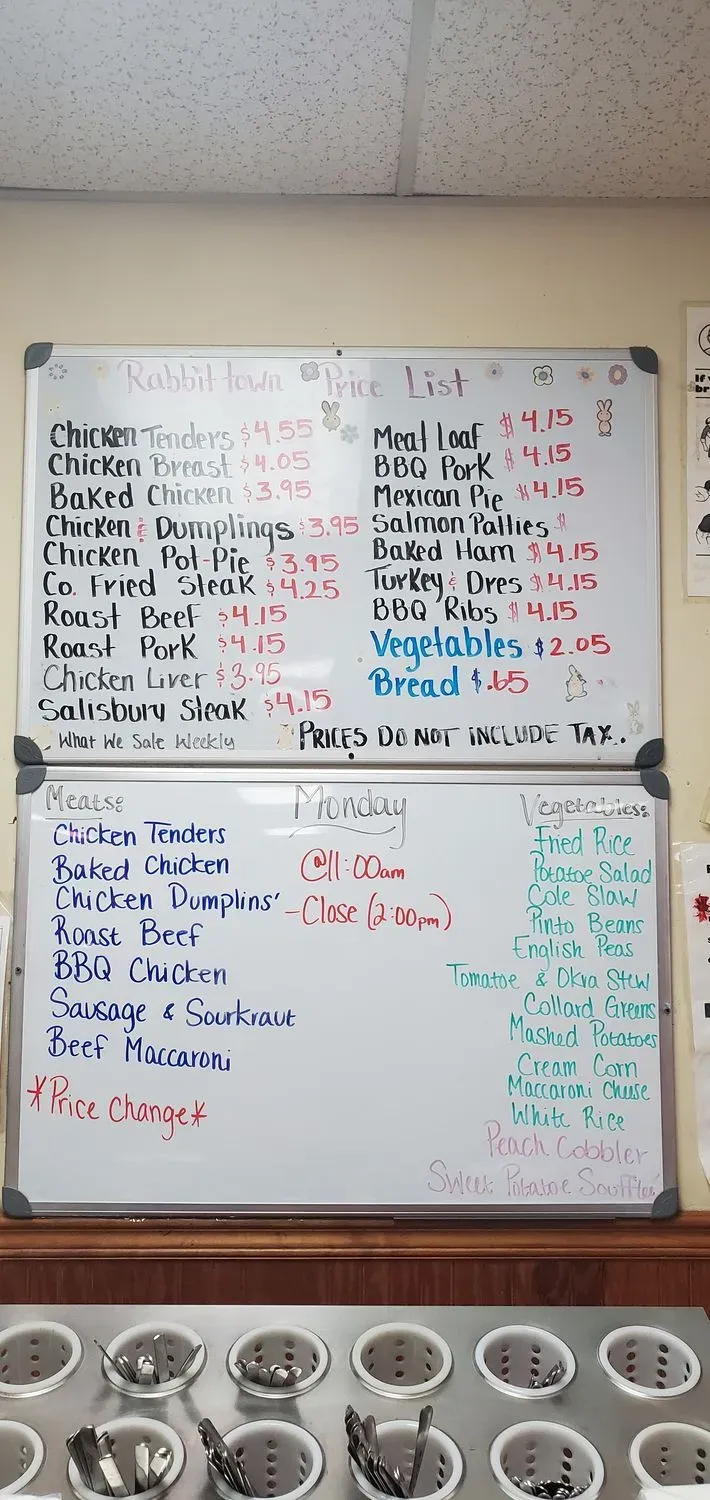 Rabbittown Price List
Chicken Tenders $4.55
Chicken Breast $4.05
Baked Chicken $3.95
Chicken & Dumplings $3.95
Chicken Pot-Pie $3.95
Co. Fried Steak $4.25
Roast Beef $4.15
Roast Pork $4.15
Chicken Liver $3.95
Salisbury Steak $4.15
What We Sale Weekly
Meat Loaf $4.15
BBQ Pork $4.15
Mexican Pie $4.15
Salmon Patties $
Baked Ham $4.15
Turkey & Dres $4.15
BBQ Ribs $4.15
Vegetables $2.05
Bread $.65
PRICES DO NOT INCLUDE TAX.
Meats:
Chicken Tenders
Baked Chicken
Chicken Dumplins'
Roast Beef
BBQ Chicken
Sausage & Sourkraut
Beef Maccaroni
*Price Change*
Monday
@11:00am
-Close (2:00pm)
Vegetables:
Fried Rice
Potatoe Salad
Cole Slaw
Pinto Beans
English Peas
Tomatoe & Okra Stew
Collard Greens
Mashed Potatoes
Cream Corn
Maccaroni Cheese
White Rice
Peach Cobbler
Sweet Potatoe Souffle'